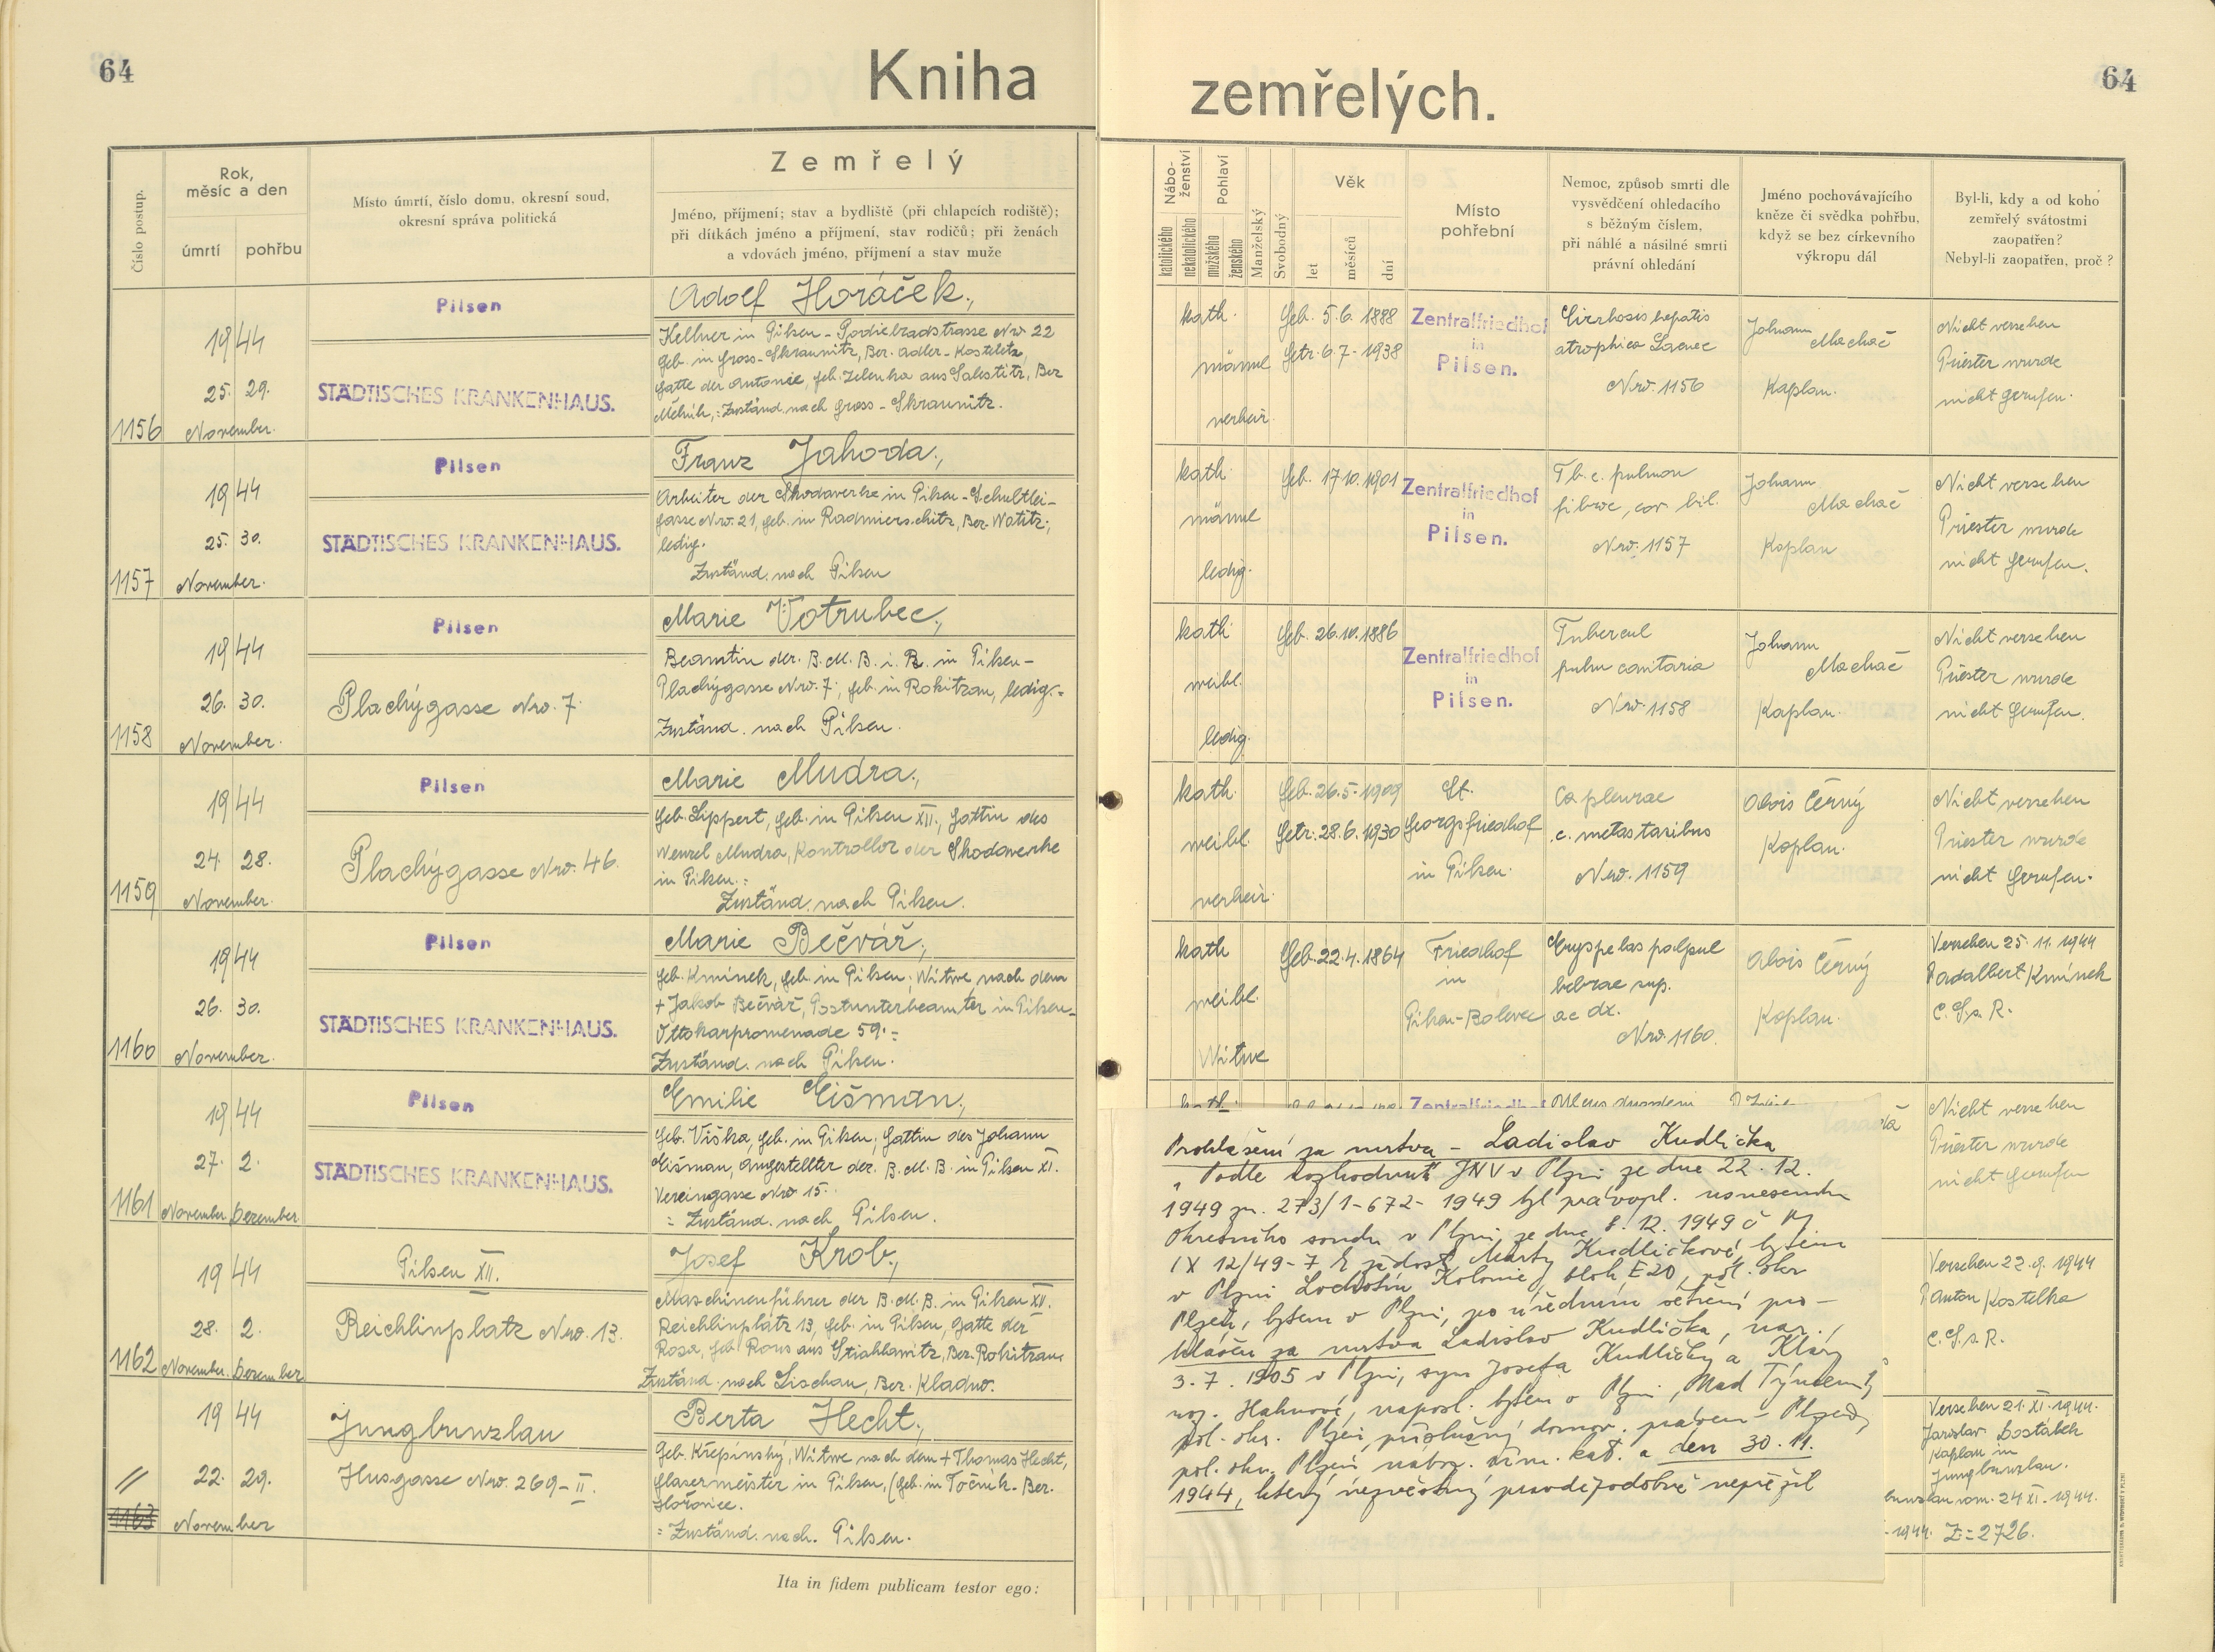 64
Kniha
zemřelých.
64
Číslo postup.
Rok,
měsíc a den
úmrtí
pohřbu
Místo úmrtí, číslo domu, okresní soud,
okresní správa politická
Zemřelý
Jméno, příjmení; stav a bydliště (při chlapcích rodiště);
při dítkách jméno a příjmení, stav rodičů; při ženách
a vdovách jméno, příjmení a stav muže
Nábo-
ženství
katolického
nekatolického
Pohlaví
mužského
ženského
Manželský
Svobodný
Věk
let
měsíců
dní
Místo
pohřební
Nemoc, způsob smrti dle
vysvědčení ohledacího
s běžným číslem,
při náhlé a násilné smrti
právní ohledání
Jméno pochovávajícího
kněze či svědka pohřbu,
když se bez církevního
výkropu dál
Byl-li, kdy a od koho
zemřelý svátostmi
zaopatřen?
Nebyl-li zaopatřen, proč?
1156
1944
25. 29.
November.
Pilsen
STÄDTISCHES KRANKENHAUS.
Adolf Horáček.,
Kellner in Pilsen - Podiebradstrasse Nro 22
geb. in Gross-Skraunitz, Ber. Adler-Kosteletz,
Gatte der Antonie, geb. Zelenka aus Ber
Zuständ. nach Gross-Skraunitz.
kath.
männl
verheir.
Geb. 5.6. 1888
Getr. 6.7.-1938
Zentralfriedhof
in
Pilsen.
Cirrhosis hepatis
atrophica Laenec
Nro. 1156
Johann
Machač
Kaplan.
Nicht versehen
Priester wurde
nicht gerufen.
1157
1944
25. 30.
November.
Pilsen
STÄDTISCHES KRANKENHAUS.
Franz Jahoda.,
Arbeiter der Skodawerke in Pilsen -
gasse Nro. 21, geb. in Ber.
ledig.
Zuständ. nach Pilsen
kath.
männl
ledig.
Geb. 17.10.1901
Zentralfriedhof
in
Pilsen.
Tb.c. pulmon
cor bil.
Nro. 1157
Johann
Machač
Kaplan
Nicht versehen
Priester wurde
nicht gerufen.
1158
1944
26. 30.
November.
Pilsen
Plachýgasse Nro. 7.
Marie Votrubec.,
Beamtin der. B.M.B. i. R. in Pilsen -
Plachýgasse Nro. 7., geb. in Rokitzan, ledig.=
Zuständ. nach Pilsen.
kath
weibl.
ledig.
Geb. 26.10.1886
Zentralfriedhof
in
Pilsen.
Tubercul
Nro. 1158
Johann
Machač
Kaplan.
Nicht versehen
Priester wurde
nicht gerufen.
1159
1944
24. 28.
November.
Pilsen
Plachýgasse Nro. 46.
Marie Mudra.,
geb. Lippert, geb. in Pilsen XII., Gattin des
Wenzel Mudra, Kontrollor der Skodawerke
in Pilsen.=
Zuständ. nach Pilsen.
kath.
weibl.
verheir.
Geb. 26.5.1909
Getr. 28.6.1930
St.
Georgsfriedhof
in Pilsen.
Ca pleurae
c. metastasibus
Nro. 1159
Alois Černý
Kaplan.
Nicht versehen
Priester wurde
nicht gerufen.
1160
1944
26. 30.
November.
Pilsen
STÄDTISCHES KRANKENHAUS.
Marie Bečvář.,
geb. Kminek, geb. in Pilsen; Witwe nach dem
+ Jakob Bečvář, Postunterbeamter in Pilsen-
Ottokarpromenade 59.=
Zuständ. nach Pilsen.
kath
weibl.
Witwe
Geb. 22.4.1864
Friedhof
in
Pilsen-Bolevec
Erysipelas palpe
bebrae sup.
ac dx.
Nro. 1160.
Alois Černý
Kaplan.
Versehen 25.11.1944
P. Adalbert Kmínek
C.Ss.R.
1161
1944
27. 2.
November Dezember
Pilsen
STÄDTISCHES KRANKENHAUS.
Emilie Eišman.,
geb. Viška, geb. in Pilsen; Gattin des Johann
Eišman, Angestellter der. B.M.B. in Pilsen XI.
Vereingasse Nro 15.
= Zuständ. nach Pilsen.
kath.
Zentralfriedhof
Nicht versehen
Priester wurde
nicht gerufen
1162
1944
28. 2.
November. Dezember
Pilsen XII.
Reichlinplatz Nro. 13.
Josef Krob.,
Maschinenführer der B.M.B. in Pilsen XII.
Reichlinplatz 13, geb. in Pilsen, Gatte der
Rosa, geb. Rous aus Stiahlawitz, Ber. Rokitzan,
Zuständ. nach Lischau, Ber. Kladno.
Versehen 22.9.1944
P. Anton Kostelka
C.Ss.R.
//
1163
1944
22. 29.
November
Jungbunzlau
Husgasse Nro. 269-II.
Berta Hecht.,
geb. Křepinský, Witwe nach dem + Thomas Hecht,
Glasermeister in Pilsen, (geb. in Točnik-Ber.
Hořowic.
= Zuständ. nach. Pilsen.
Versehen 21.XI.1944.
Jaroslav Dostálek
Kaplan in
Jungbunzlau.
bunzlau vom. 24 XI. 1944.
-1944. Z:=2726.
Prohlášení za mrtva - Ladislav Kudlička
Podle rozhodnutí JNV v Plzni ze dne 22.12.
1949 zn. 273/1-672-1949 byl pravopl. usnesením
okresního soudu v Plzni ze dne 8.12.1949 č
IX 12/49-7 k žádosti Marty Kudličkové, bytem
v Plzni Lochotín Kolonie, blok E20, pol. okr
Plzeň, bytem v Plzni, po úředním šetření pro-
hlášen za mrtva Ladislav Kudlička, nar.
3.7.1905 v Plzni, syn Josefa Kudličky a Kláry
roz. Hahnové, naposl. bytem v Plzni, Nad Týncem
pol. okr. Plzeň, příslušný domov. právem - Plzeň,
pol. okr. Plzeň, nábož. řím. kat. a den 30.11.
1944, který nezvěstný pravděpodobně nepřežil
Ita in fidem publicam testor ego: